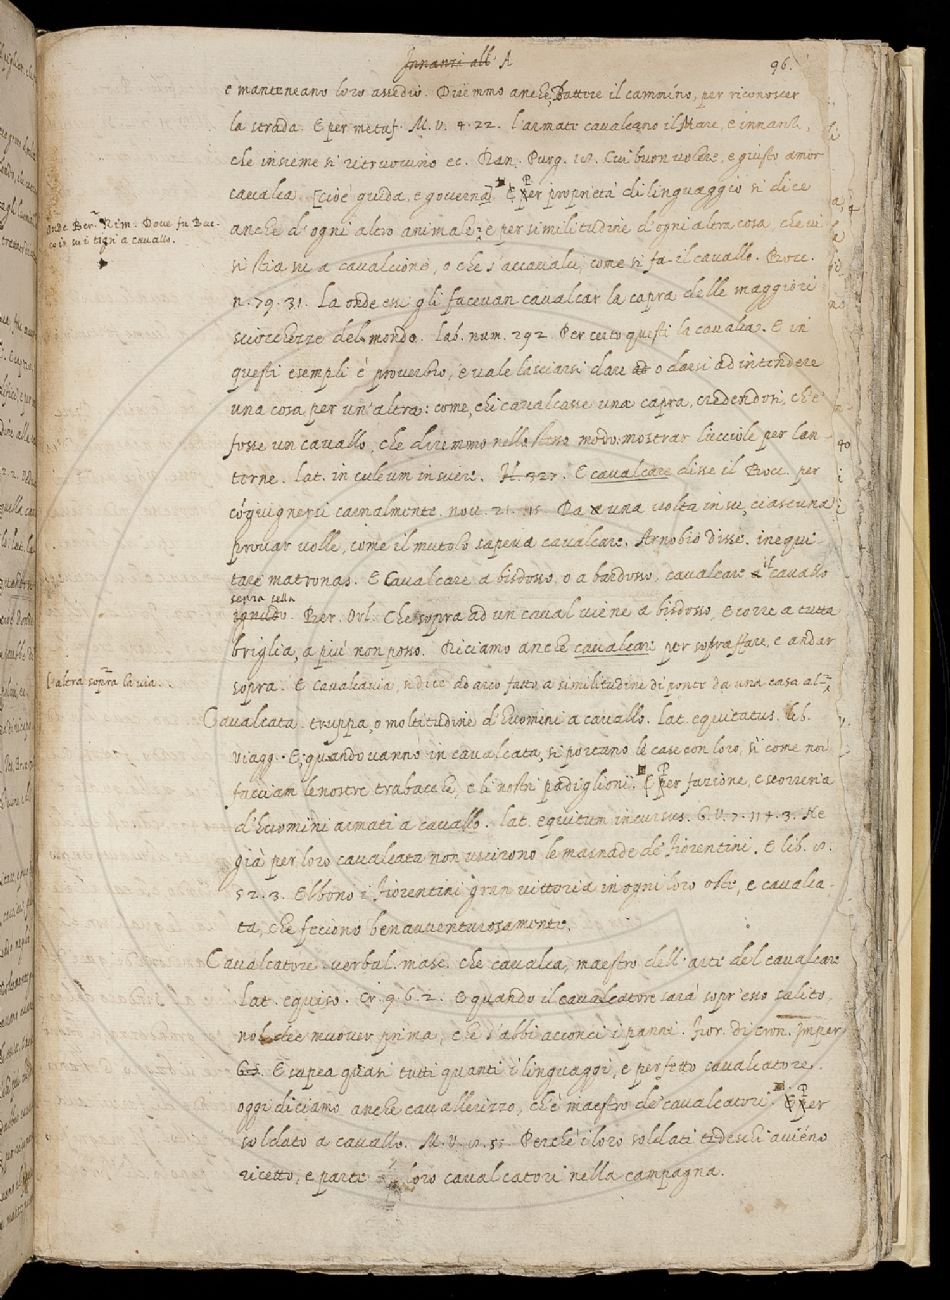 Innanzi all' A
96.
e manteneano loro assedio. Diremmo anche, Battere il cammino, per riconoscer
la strada. E per metaf. M. V. 4. 22. l'armate cavalcano il Mare, e innanzi,
che insieme si ritruovino ec. Dan. Purg. 18. Cui buon volere, e giusto amor
cavalca. [cioè guida, e governa] E Per proprietà di linguaggio si dice
anche d'ogni altro animale; e per similitudine d'ogni altra cosa, che vi
Onde Ber. Rim. Dove fu Bac-
co in su i tigri a cavallo.
si stia su a cavalcione, o che s'accavalci, come si fa il cavallo. Bocc.
n. 79. 31. La onde essi gli facevan cavalcar la capra delle maggiori
sciocchezze del mondo. Lab. num. 292. Per certo questi la cavalca. E in
questi esempli è proverbio, e vale lasciarsi dare o darsi ad intendere
una cosa per un'altra: come, chi cavalcasse una capra, credendosi, che
fosse un cavallo, che diremmo nello stesso modo: mostrar lucciole per lan-
terne. lat. in culeum inserere. E cavalcare disse il Bocc. per
co'gnugnersi carnalmente. nov. 21. 15 Da una volta in su, ciascuna
provar volle, come il mutolo sapeva cavalcare. Arnobio disse. inequi-
tare matronas. E Cavalcare a bisdosso, o a bardosso, cavalcare il cavallo
senza sella
ignudo. Ber. Orl. Che sopra ad un caval viene a bisdosso, E corre a tutta
briglia, a più non posso. Diciamo anche cavalcare per sopraffare, e andar
sopra. E Cavalcavia, si dice ad arco fatto a similitudine di ponte da una casa al-
l'altra sopra la via.
Cavalcata. truppa, o moltitudine d'huomini a cavallo. lat. equitatus. lib.
viagg. E quando vanno in cavalcata, si portano le case con loro, sì come noi
facciam le nostre trabacche, e li nostri padiglioni. E Per fazione, e scorreria
d'huomini armati a cavallo. lat. equitum incursus. G. V. 7. 114. 3. Ne
già per loro cavalcata non uscirono le masnade de' fiorentini. E lib. 8.
52. 3. Ebbono i fiorentini gran vittoria in ogni loro oste, e cavalca-
ta, che feciono benavventurosamente.
Cavalcatore. verbal. masc. che cavalca, maestro dell'arte del cavalcare
lat. equiso. Cr. 9. 6. 2. E quando il cavalcatore sarà sopr'esso salito,
nol dee muover prima, che s'abbi acconci i panni. fior. di Cron. Imper
E sapea quasi tutti quanti i linguaggi, e perfetto cavalcatore.
oggi diciamo anche cavallerizzo, ch'è maestro de' cavalcatori. E Per
soldato a cavallo. M. V. 8. Perchè i loro soldati tedeschi aviéno
ricetto, e parte loro cavalcatori nella campagna.